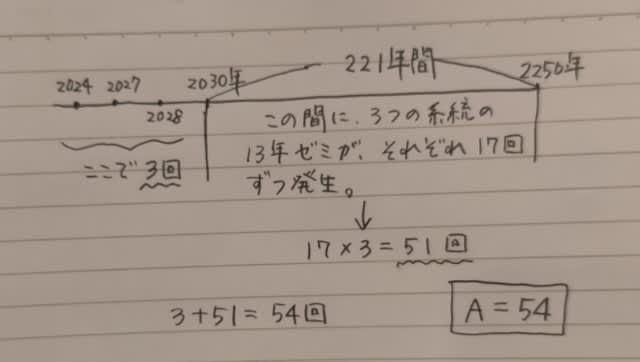 221年間
2024 2027 2030年 2250年
2028
この間に、3つの系統の
13年ゼミが、それぞれ17回
ずつ発生。
ここで3回
17×3=51回
3+51=54回
A=54